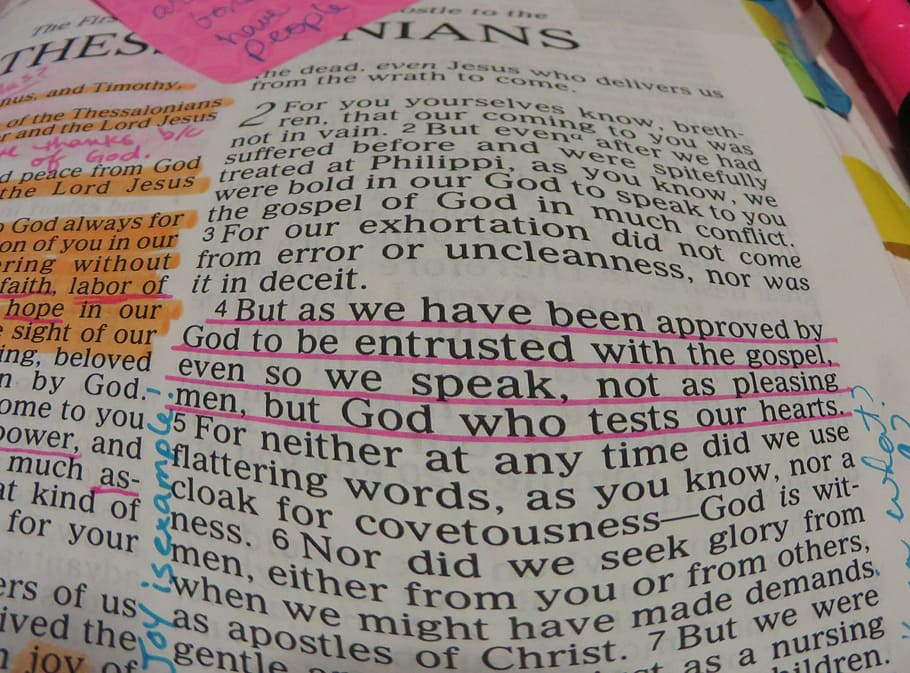 The Firs
ostle to the
THES
NIANS
bon
have
people
nus, and Timothy,
of the Thessalonians
r and the Lord Jesus
thanks b/c
of God.
d peace from God
the Lord Jesus
God always for
on of you in our
ering without
faith, labor of
hope in our
e sight of our
ing, beloved
n by God.
ome to you
power, and
much as-
at kind of
for your
ers of us
ived the
n joy of
Joy is example
the dead, even Jesus who delivers us
from the wrath to come.
2 For you yourselves know, breth-
ren, that our coming to you was
not in vain. 2 But even a after we had
suffered before and were spitefully
treated at Philippi, as you know, we
were bold in our God to speak to you
the gospel of God in much conflict.
3 For our exhortation did not come
from error or uncleanness, nor was
it in deceit.
4 But as we have been approved by
God to be entrusted with the gospel,
even so we speak, not as pleasing
men, but God who tests our hearts.
5 For neither at any time did we use
flattering words, as you know, nor a
cloak for covetousness—God is wit-
ness. 6 Nor did we seek glory from
men, either from you or from others,
when we might have made demands
as apostles of Christ. 7 But we were
gentle
as a nursing
children.
what?